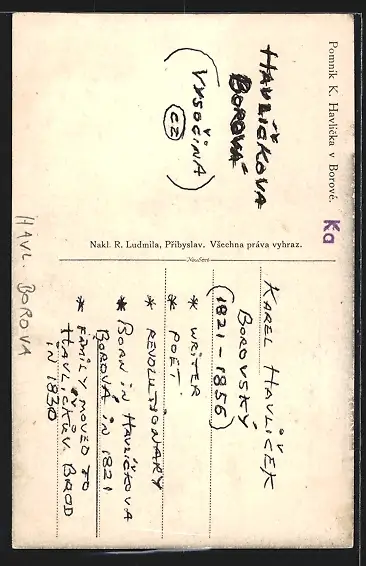 Pomník K. Havlíčka v Borové.
Ka
HAVLÍČKOVA
BOROVÁ
(VYSOČINA
CZ)
Nakl. R. Ludmila, Přibyslav. Všechna práva vyhraz.
HAVL. BOROVA
KAREL HAVLÍČEK
BOROVSKÝ
(1821-1856)
* WRITER
* POET
* REVOLUTIONARY
* BORN IN HAVLÍČKOVA
BOROVÁ IN 1821
* FAMILY MOVED TO
HAVLÍČKŮV BROD
IN 1830